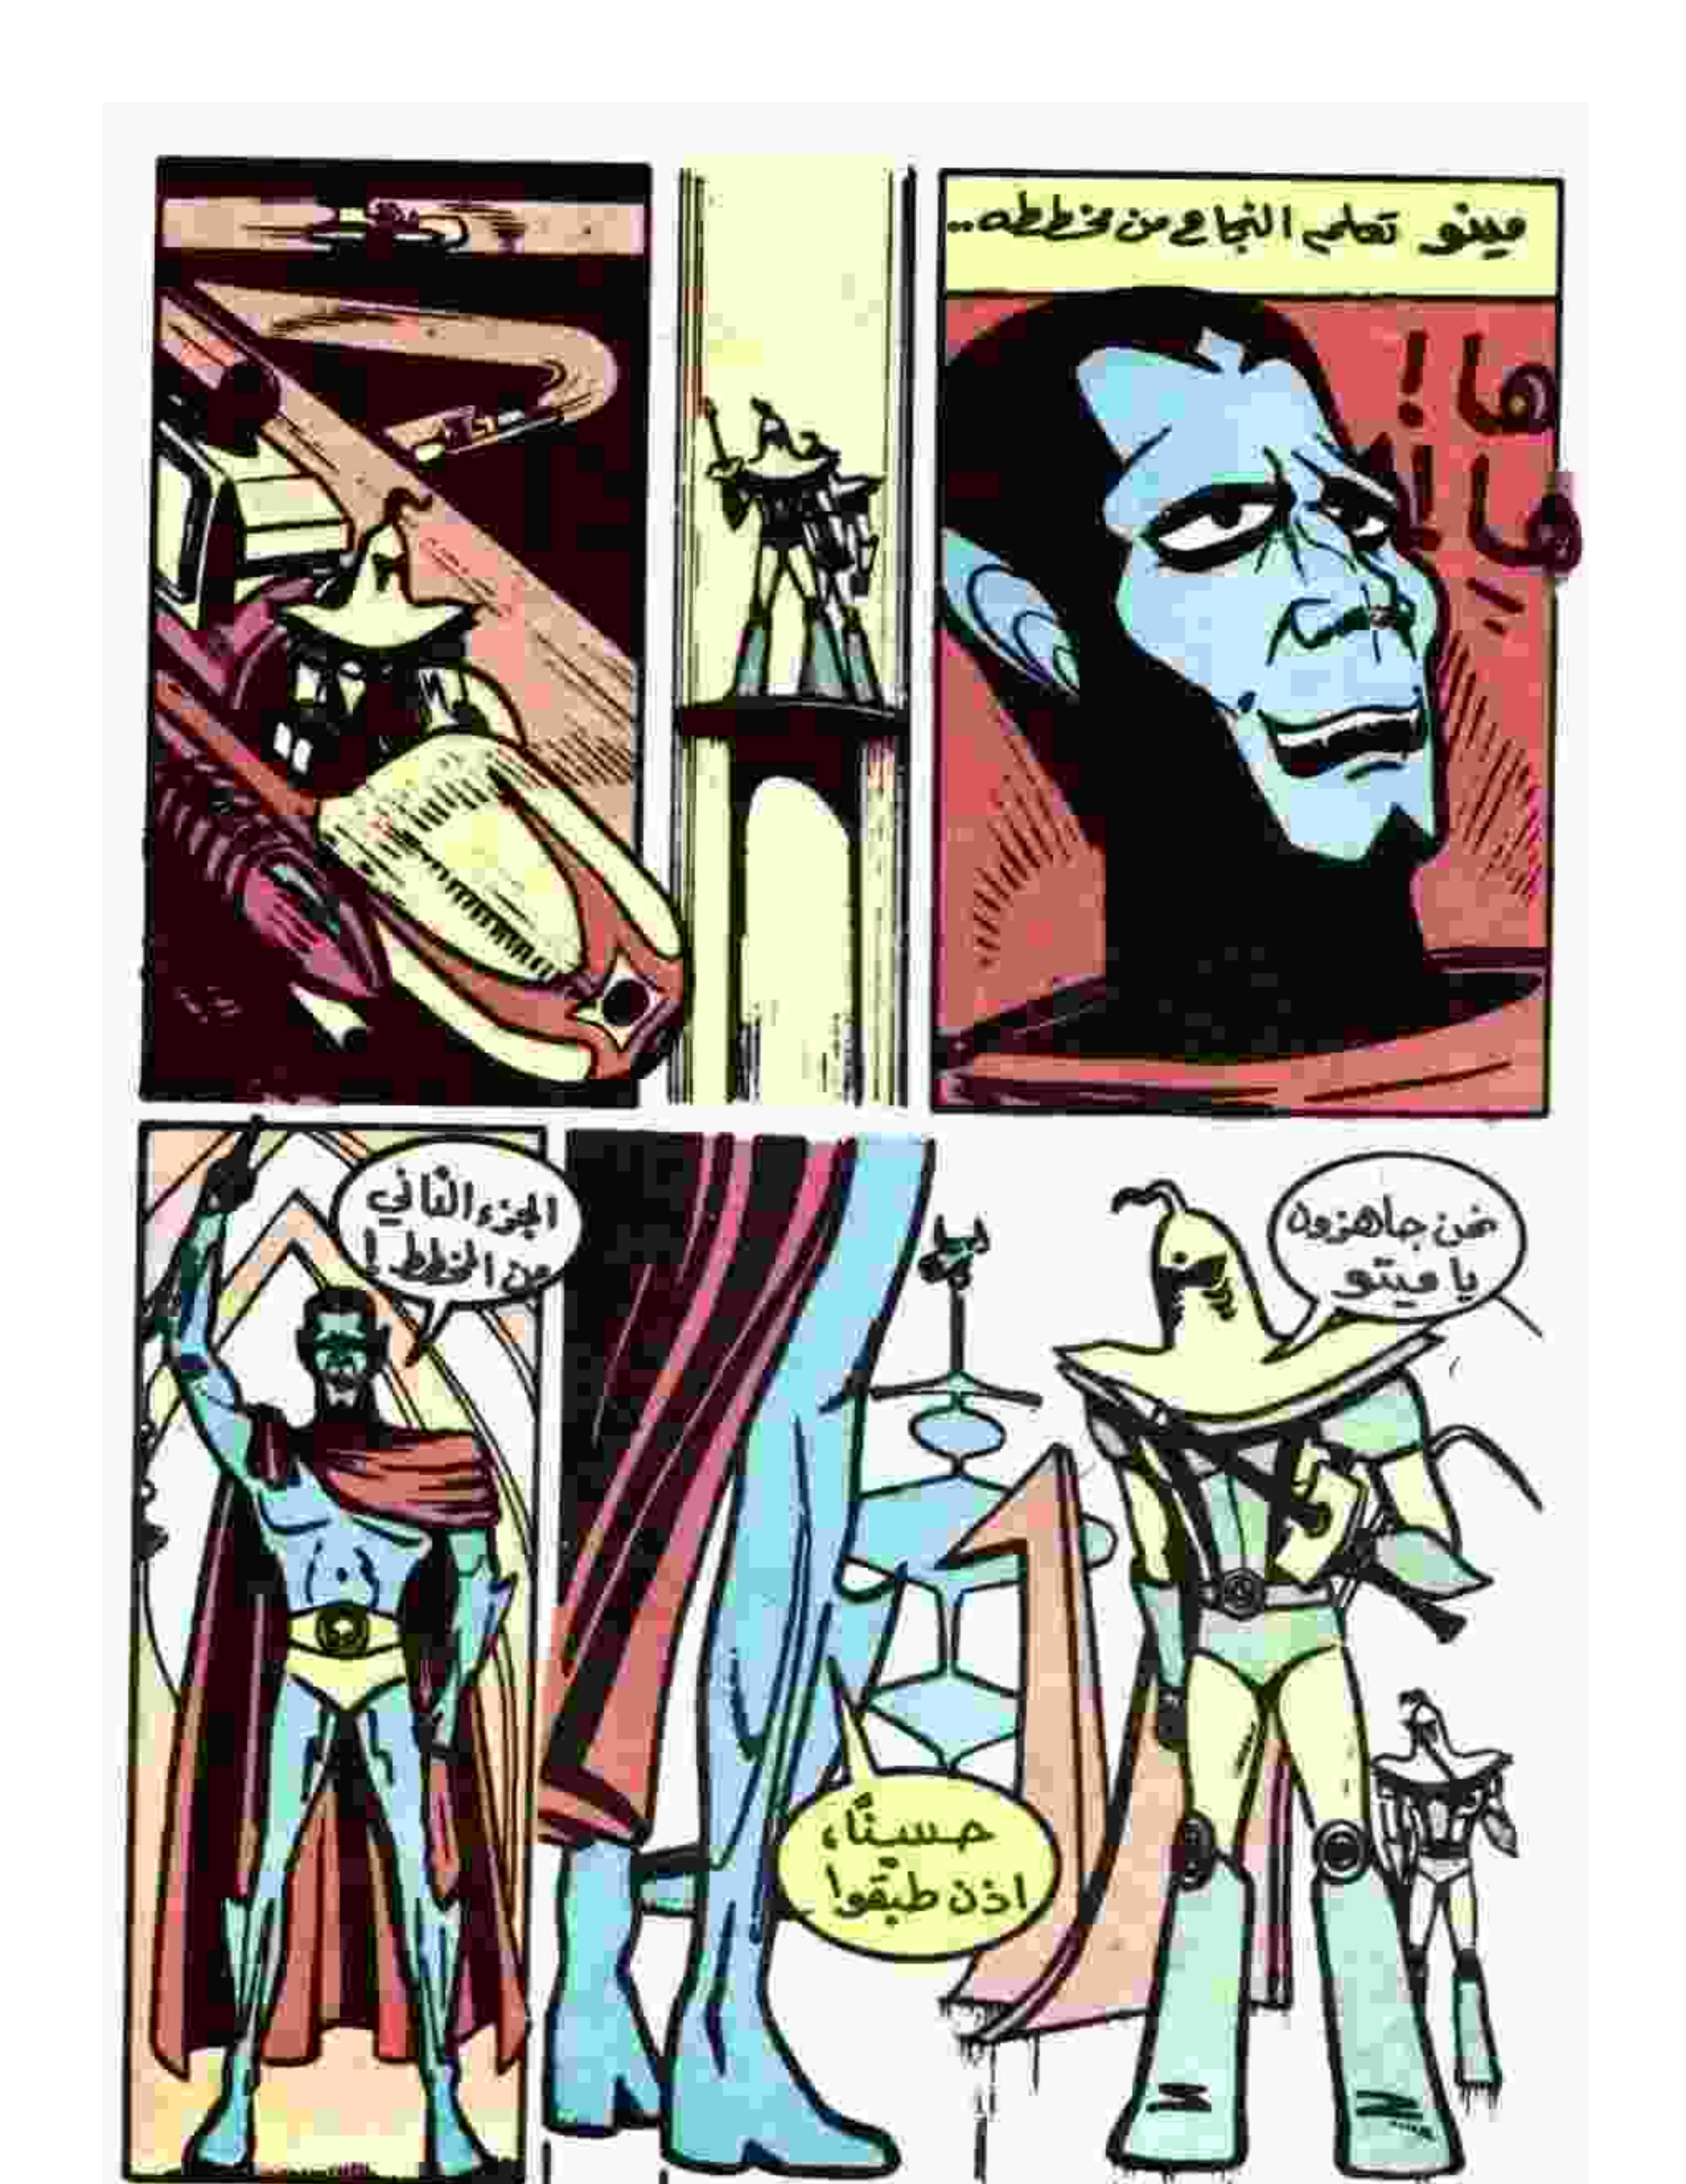 مينو تعلم النجاح من مخططه..
ها!
ها!!
نحن جاهزون
يا ميتو
حسينًا،
اذن طبقوا
الجزء الثاني
من المخطط!